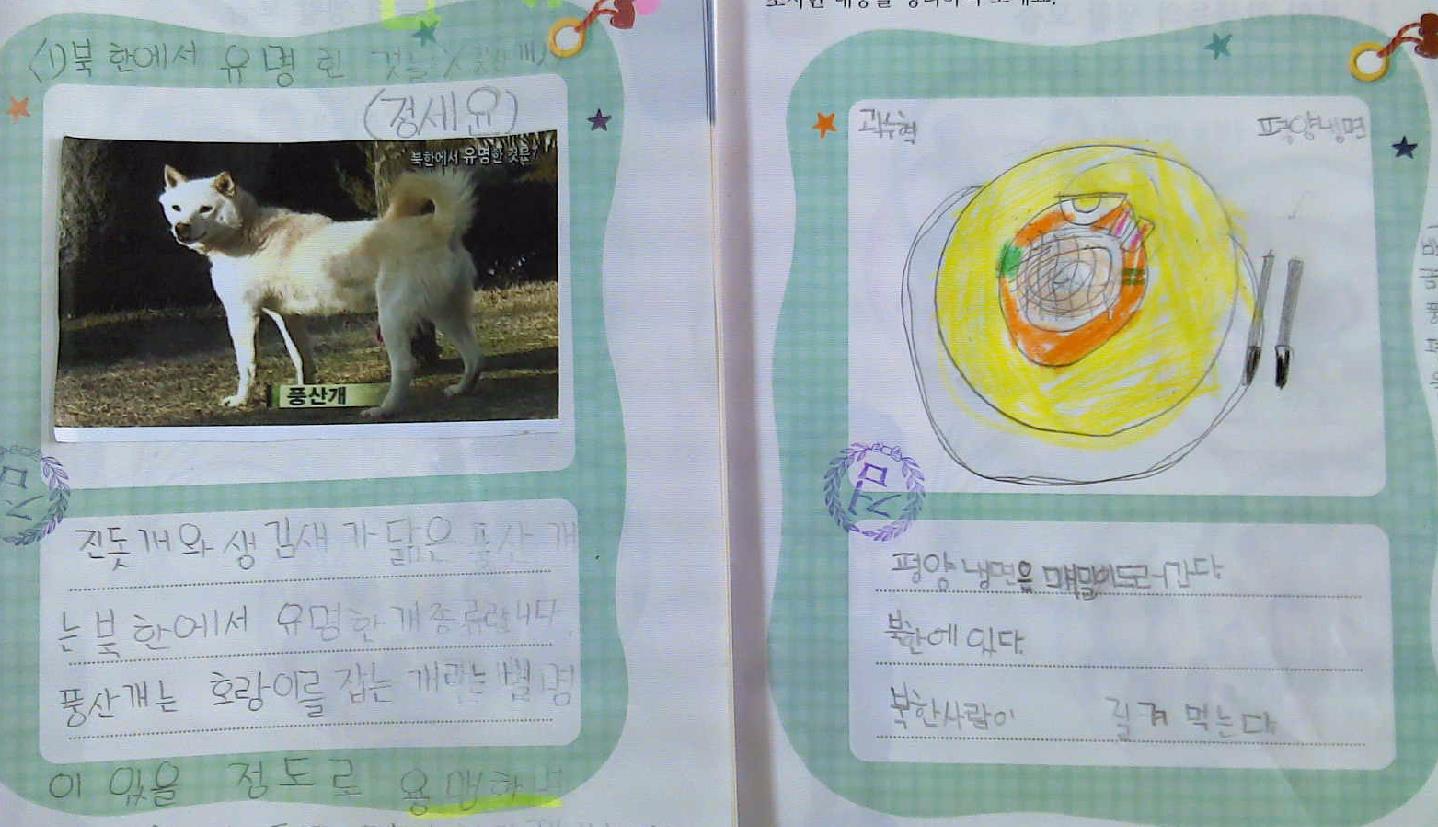 조사한 내용을 정리하여 보세요.
(1)북한에서 유명한 것을
(정세요)
북한에서 유명한 것은?
풍산개
진돗개와 생김새가 닮은 풍산개
는 북한에서 유명한 개 종류랍니다.
풍산개는 호랑이를 잡는 개라는 별명
이 있을 정도로 용맹하
평양냉면
평양냉면은 들어간다
북한에 있다
북한사람이 즐겨 먹는다